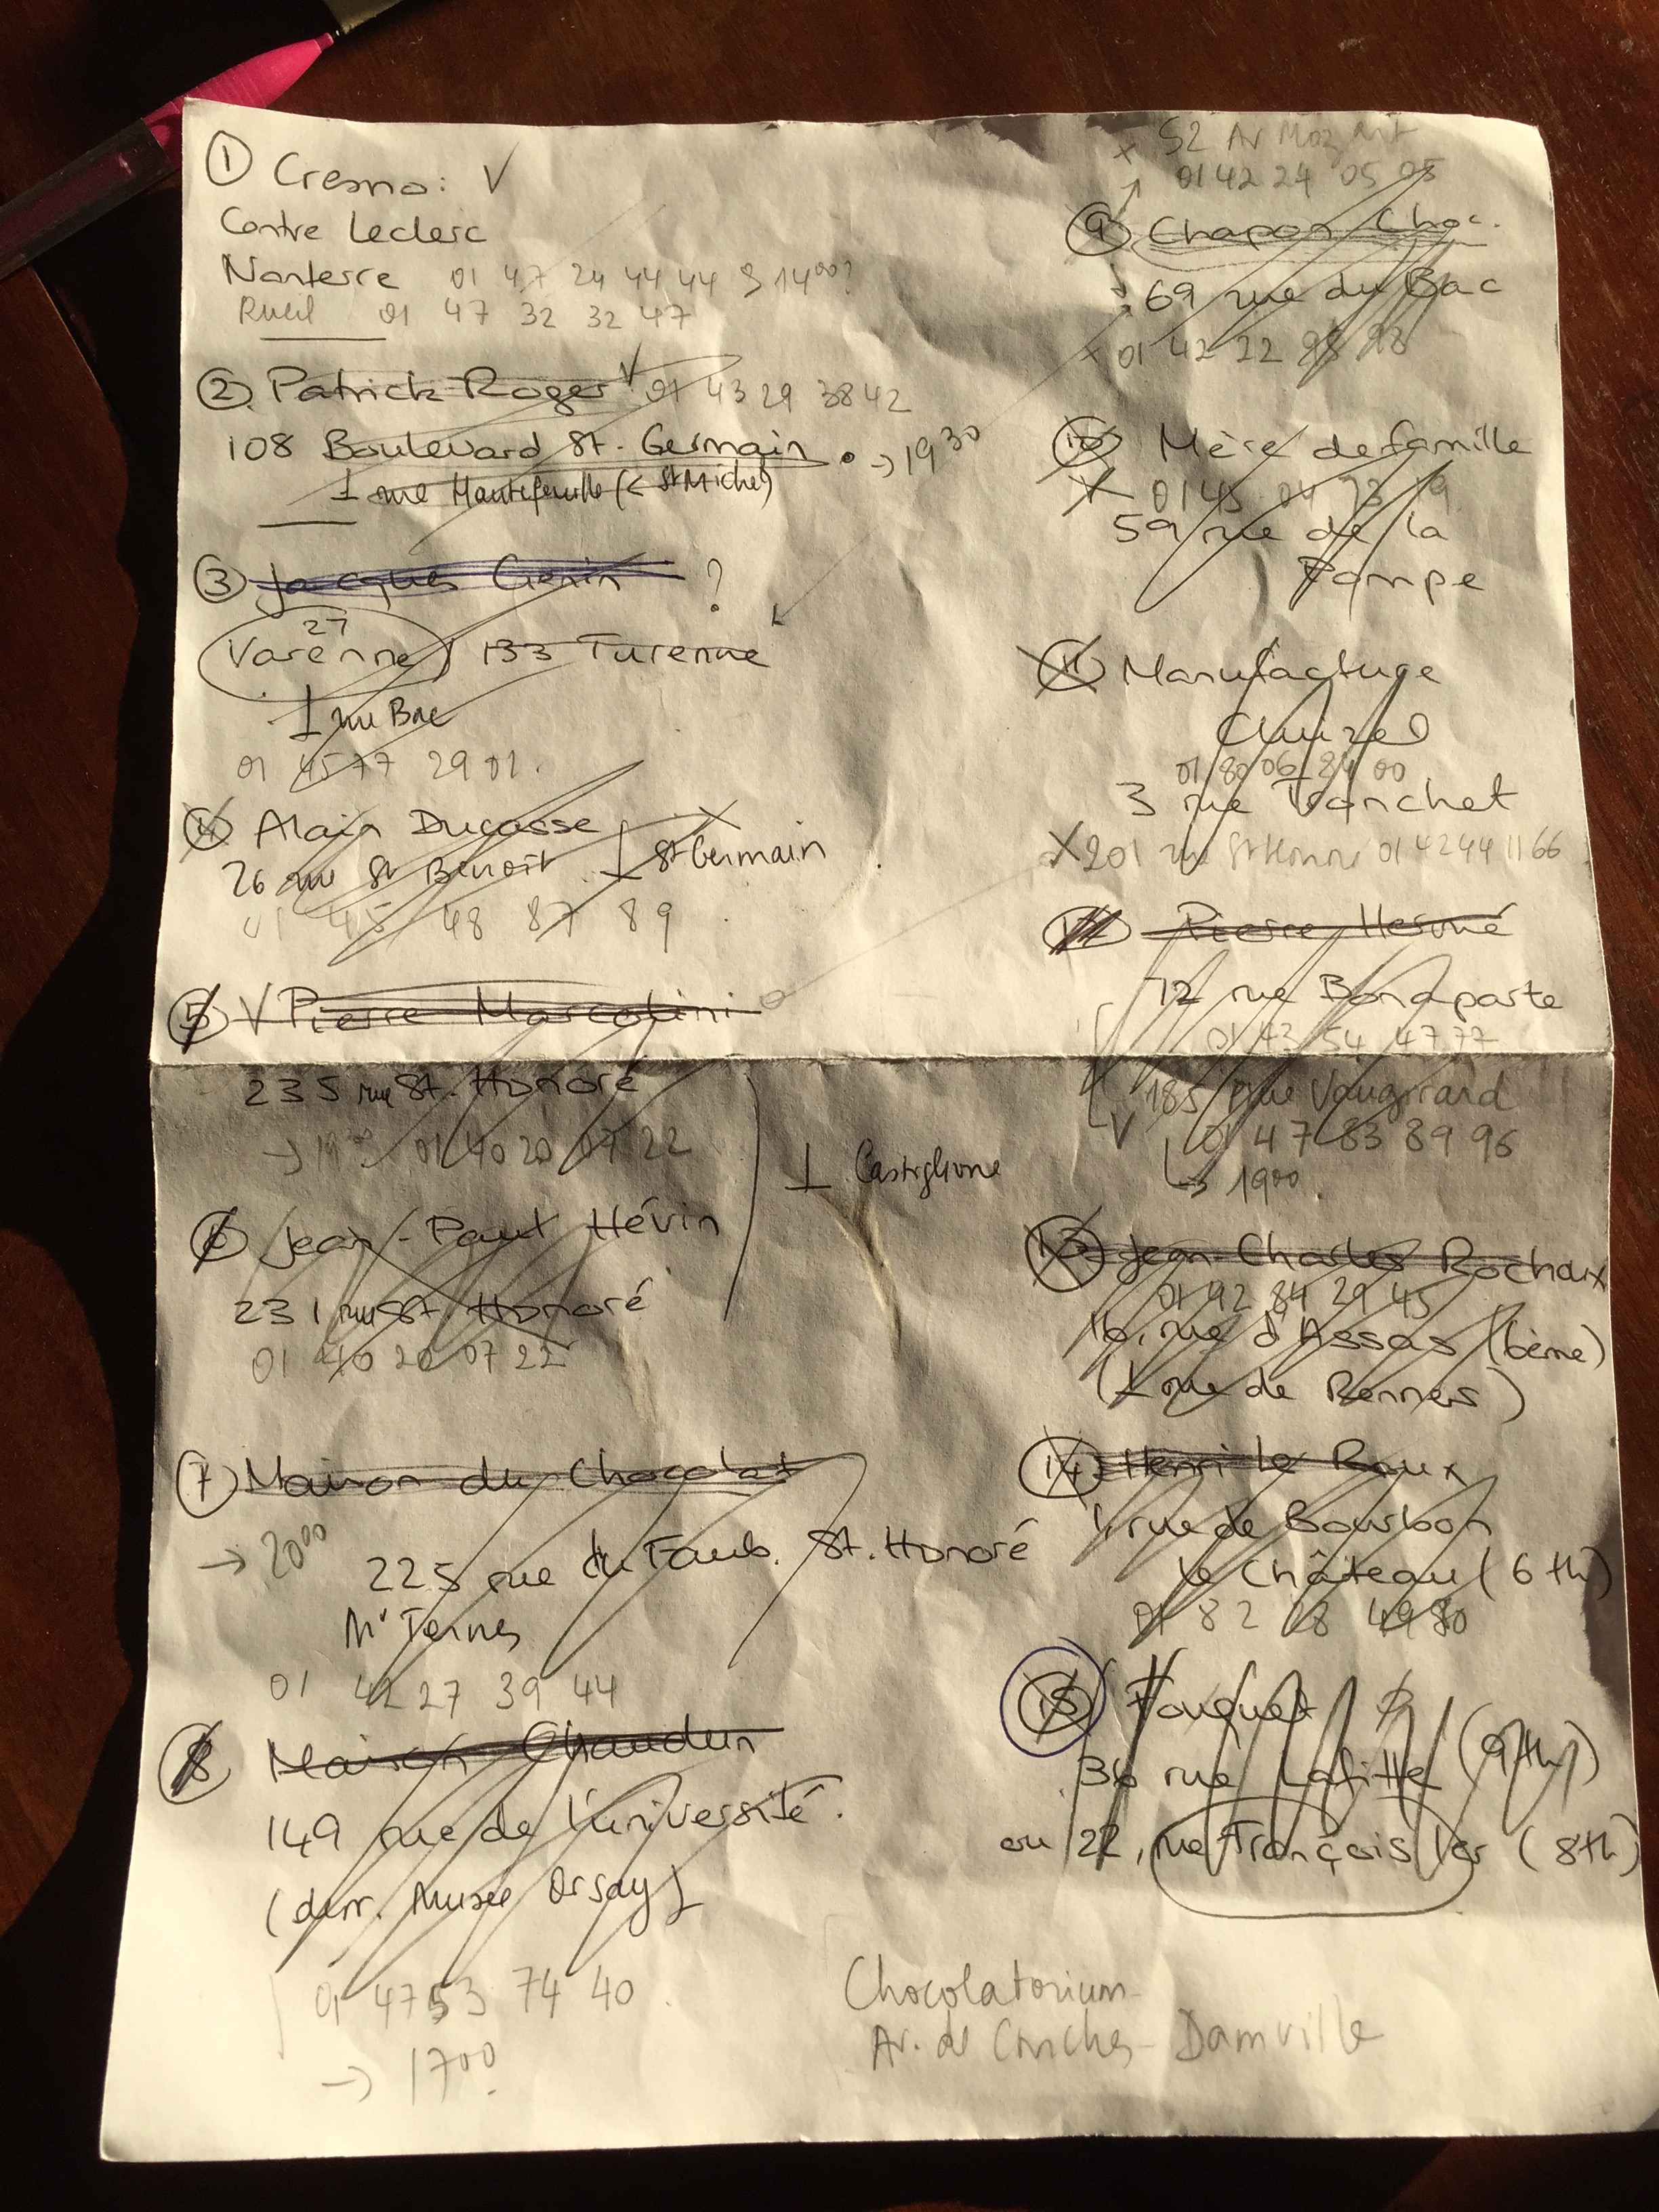 ① Cremo: V
Centre Leclerc
Nanterre 01 47 24 44 44 14⁰⁰?
Rueil 01 47 32 32 47
② Patrick Roger V 01 43 29 38 42
108 Boulevard St. Germain . → 19³⁰
⊥ rue Hautefeuille (← St Michel)
③ Jacques Genin ?
27
Varenne 133 Turenne
⊥ rue Bac
01 45 77 29 01.
④ Alain Ducasse
26 rue St Benoît ⊥ St Germain
01 45 48 87 89
⑤ V Pierre Marcolini
235 rue St. Honoré
→ 19⁰⁰ 01 40 20 07 22
⊥ Castiglione
⑥ Jean-Paul Hévin
231 rue St. Honoré
01 40 20 07 22
⑦ Maison du Chocolat
→ 20⁰⁰
225 rue du Faub. St. Honoré
M° Ternes
01 42 27 39 44
⑧ Maison Chaudun
149 rue de l'université.
(derr. Musée Orsay)
01 47 53 74 40
→ 17⁰⁰
x 52 Av Mozart
01 42 24 05 05
⑨ Chapon Choc.
69 rue du Bac
01 42 22 98 98
⑩ Mère de famille
X 01 45 04 73 19
59 rue de la
Pompe
⑪ Manufacture
Cluizel
01 80 06 84 00
3 rue Tronchet
X 201 rue St Honoré 01 42 44 11 66
⑫ Pierre Hermé
72 rue Bonaparte
01 43 54 47 77
185 rue Vaugirard
V 01 47 83 89 96
→ 19⁰⁰
⑬ Jean-Charles Rochoux
01 42 84 29 45
16, rue d'Assas (6ème)
(⊥ rue de Rennes)
⑭ Henri le Roux
1 rue de Bourbon
le Château (6th)
01 82 28 49 80
⑮ Fouquet
36 rue Lafitte (9th)
ou 22, rue François 1er (8th)
Chocolatorium
Av. de Conches - Damville